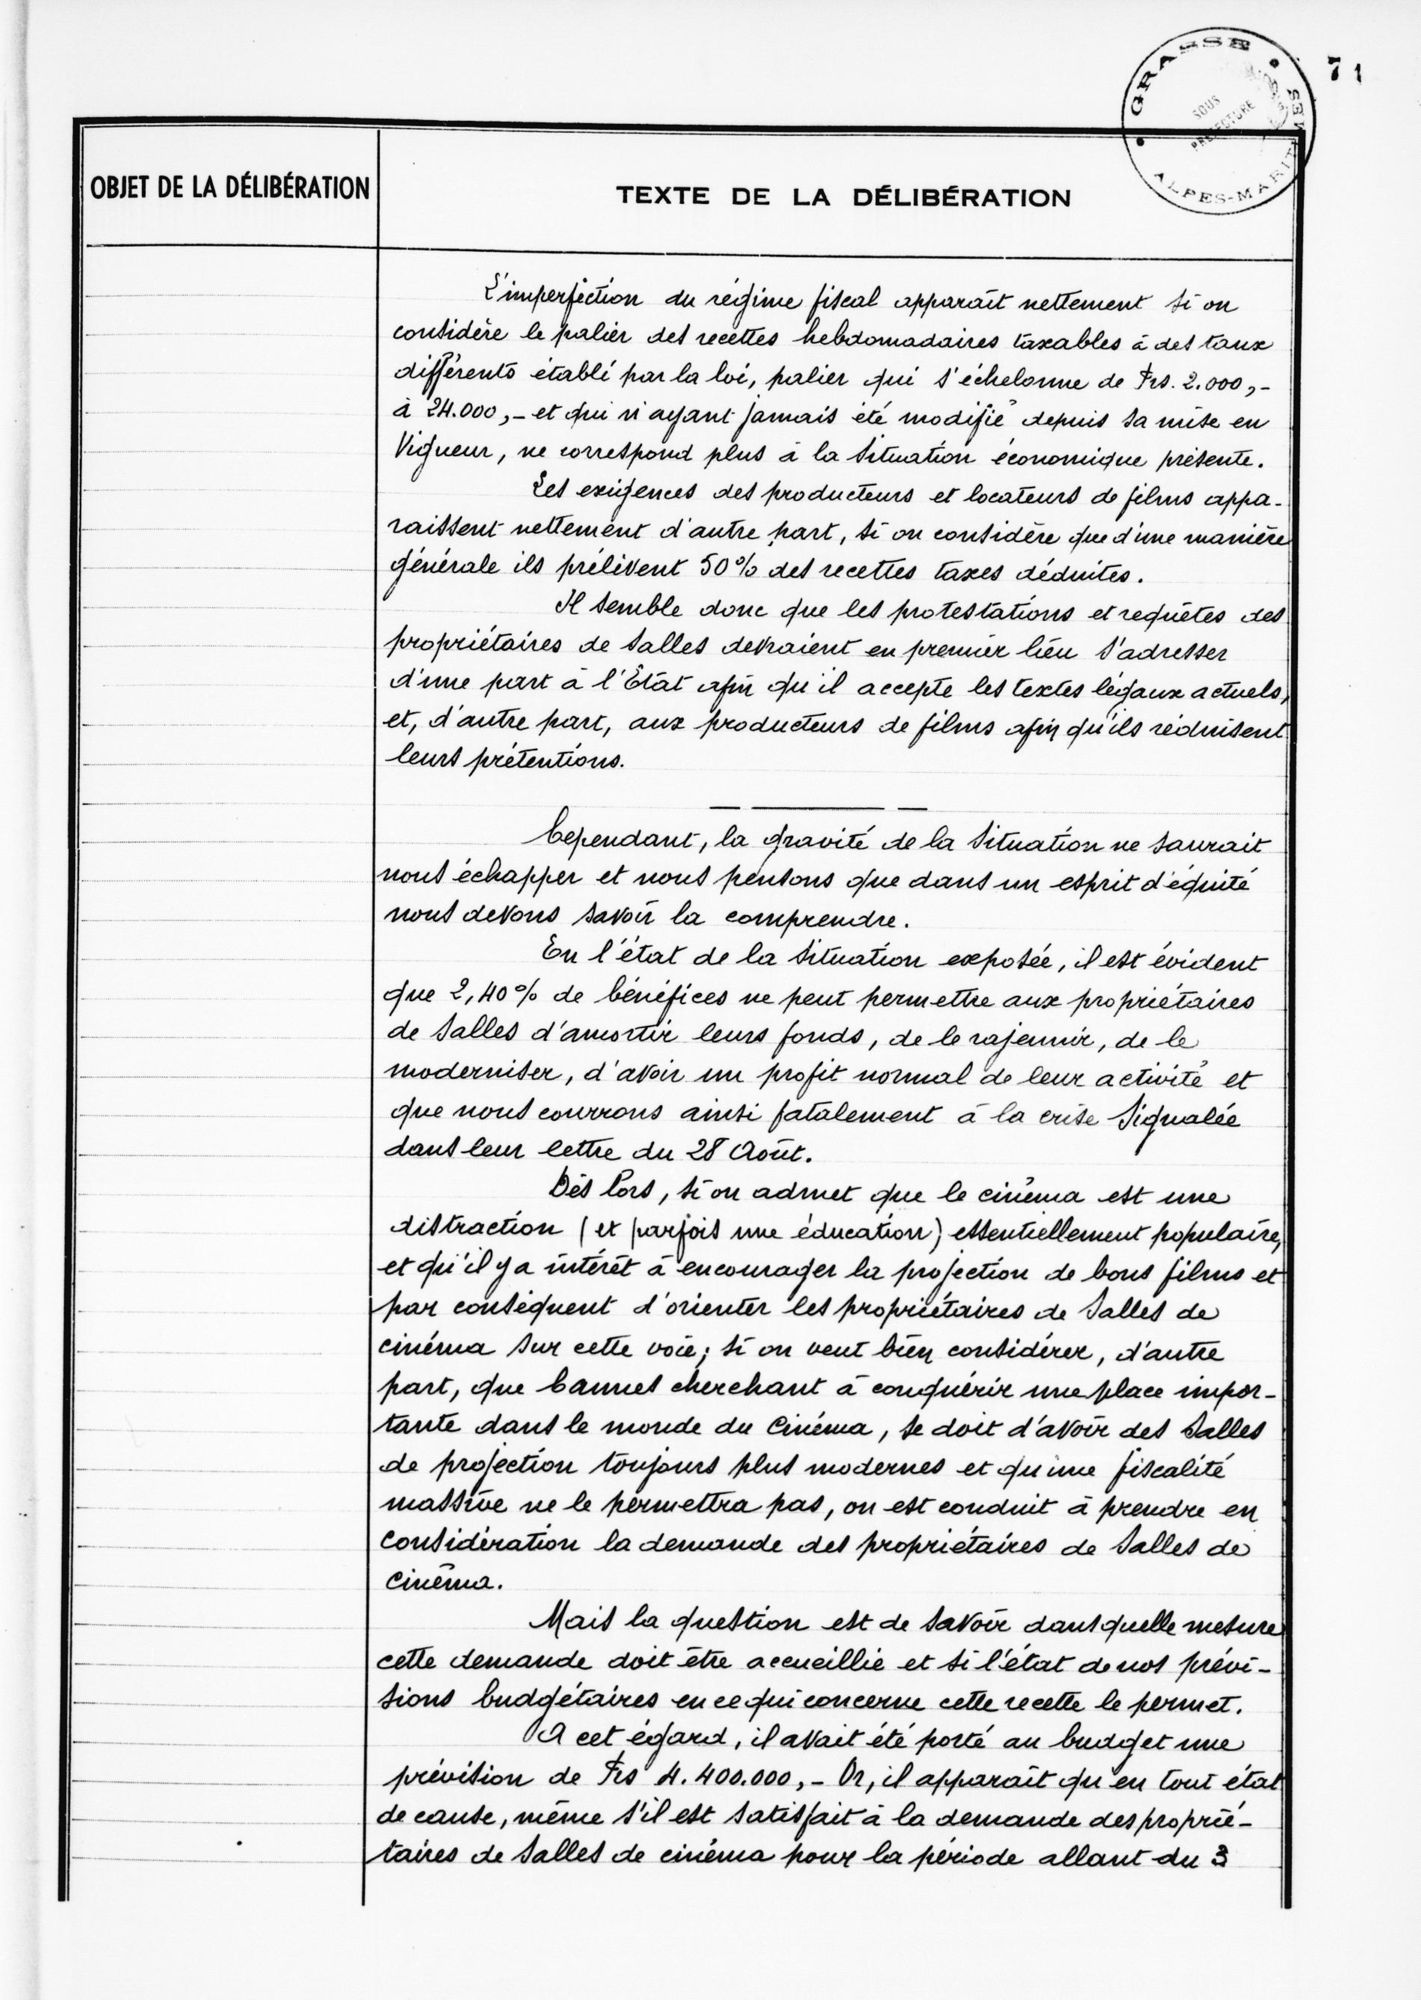 71
GRASSE
SOUS
PRÉFECTURE
ALPES-MARITIMES
OBJET DE LA DÉLIBÉRATION
TEXTE DE LA DÉLIBÉRATION
L'imperfection du régime fiscal apparaît nettement si on
considère le palier des recettes hebdomadaires taxables à des taux
différents établi par la loi, palier qui s'échelonne de Frs. 2.000,-
à 24.000,- et qui n'ayant jamais été modifié depuis sa mise en
vigueur, ne correspond plus à la situation économique présente.
Les exigences des producteurs et locateurs de films appa-
raissent nettement d'autre part, si on considère que d'une manière
générale ils prélèvent 50% des recettes taxes déduites.
Il semble donc que les protestations et requêtes des
propriétaires de salles devraient en premier lieu s'adresser
d'une part à l'Etat afin qu'il accepte les textes légaux actuels,
et, d'autre part, aux producteurs de films afin qu'ils réduisent
leurs prétentions.
Cependant, la gravité de la situation ne saurait
nous échapper et nous pensons que dans un esprit d'équité
nous devons savoir la comprendre.
En l'état de la situation exposée, il est évident
que 2,40% de bénéfices ne peut permettre aux propriétaires
de salles d'amortir leurs fonds, de le rajeunir, de le
moderniser, d'avoir un profit normal de leur activité et
que nous courrons ainsi fatalement à la crise signalée
dans leur lettre du 28 Août.
Dès lors, si on admet que le cinéma est une
distraction (et parfois une éducation) essentiellement populaire,
et qu'il y a intérêt à encourager la projection de bons films et
par conséquent d'orienter les propriétaires de salles de
cinéma sur cette voie; si on veut bien considérer, d'autre
part, que Cannes cherchant à conquérir une place impor-
tante dans le monde du Cinéma, se doit d'avoir des salles
de projection toujours plus modernes et qu'une fiscalité
massive ne le permettra pas, on est conduit à prendre en
considération la demande des propriétaires de salles de
cinéma.
Mais la question est de savoir dans quelle mesure
cette demande doit être accueillie et si l'état de nos prévi-
sions budgétaires en ce qui concerne cette recette le permet.
A cet égard, il avait été porté au budget une
prévision de Frs 4.400.000,- Or, il apparaît qu'en tout état
de cause, même s'il est satisfait à la demande des proprié-
taires de salles de cinéma pour la période allant du 3